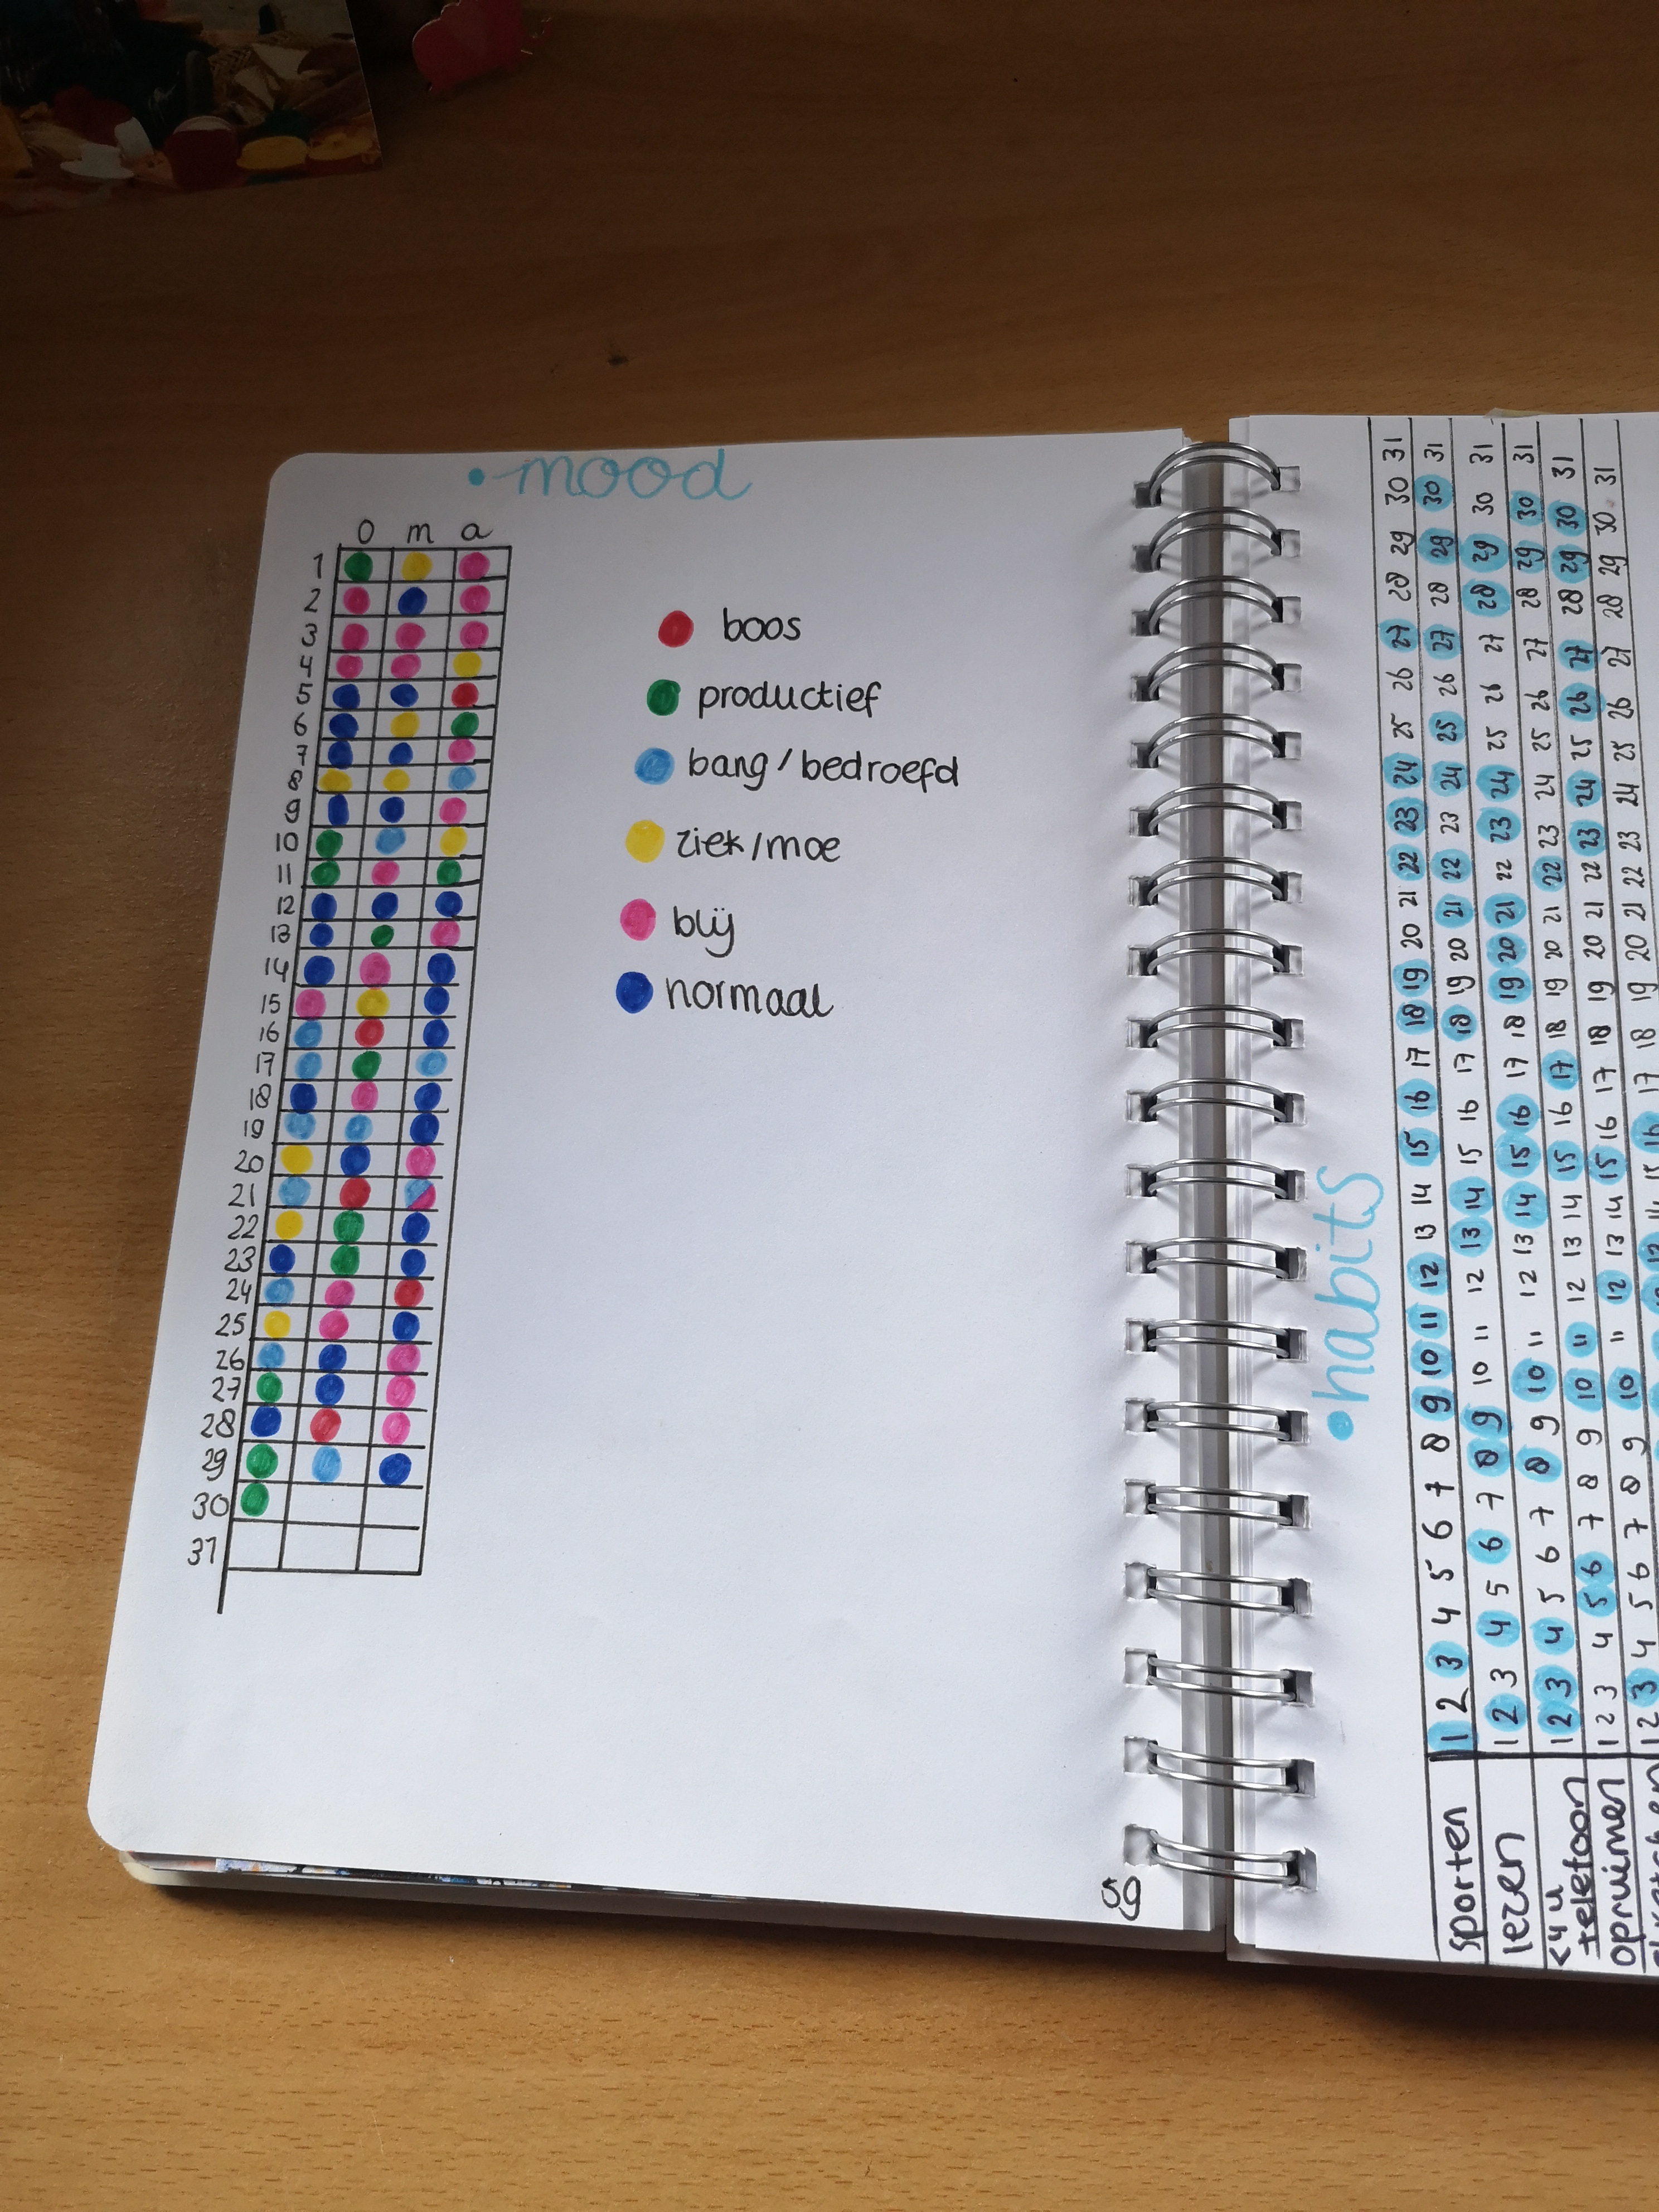 •mood
o m a
1
2
3
4
5
6
7
8
9
10
11
12
13
14
15
16
17
18
19
20
21
22
23
24
25
26
27
28
29
30
31
boos
productief
bang/bedroefd
ziek/moe
blij
normaal
59
•habits
sporten 1 2 3 4 5 6 7 8 9 10 11 12 13 14 15 16 17 18 19 20 21 22 23 24 25 26 27 28 29 30 31
lezen 1 2 3 4 5 6 7 8 9 10 11 12 13 14 15 16 17 18 19 20 21 22 23 24 25 26 27 28 29 30 31
<4u
telefoon 1 2 3 4 5 6 7 8 9 10 11 12 13 14 15 16 17 18 19 20 21 22 23 24 25 26 27 28 29 30 31
opruimen 1 2 3 4 5 6 7 8 9 10 11 12 13 14 15 16 17 18 19 20 21 22 23 24 25 26 27 28 29 30 31
1 2 3 4 5 6 7 8 9 10 11 12 13 14 15 16 17 18 19 20 21 22 23 24 25 26 27 28 29 30 31
17 18 19 20 21 22 23 24 25 26 27 28 29 30 31